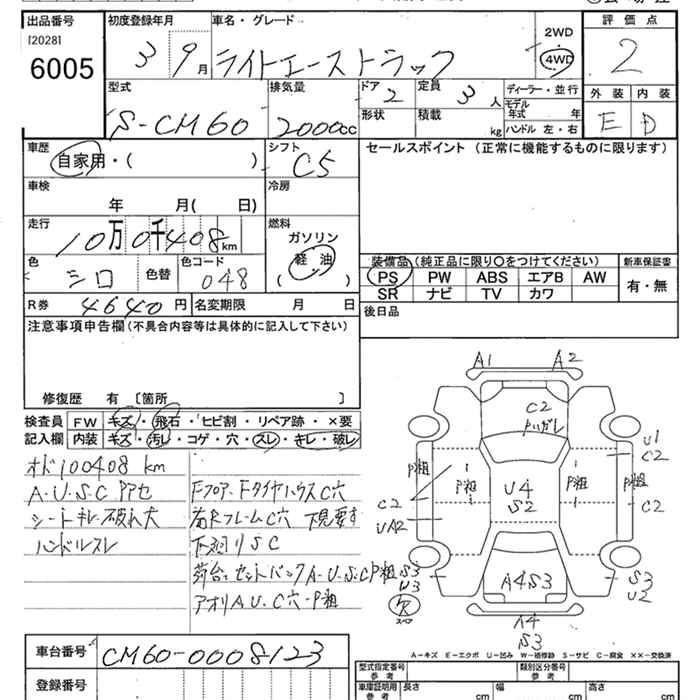 出品番号 初度登録年月 車名・グレード 評価点
[2028] 3 9月 ライトエーストラック 2WD 4WD 2
6005
型式 排気量 ドア 定員 ディーラー・並行 外装 内装
S-CM60 2000cc 2 3人 モデル年式 年 E D
形状 積載 kg ハンドル 左・右
車歴 シフト セールスポイント(正常に機能するものに限ります)
自家用・( ) C5
車検 冷房
年 月( 日)
走行 燃料
10万0千408km ガソリン
軽油
( )
色 色替 色コード 装備品(純正品に限り○をつけてください) 新車保証書
シロ 048 PS PW ABS エアB AW 有・無
SR ナビ TV カワ
R券 4640円 名変期限 月 日 後日品
注意事項申告欄(不具合内容等は具体的に記入して下さい)
修復歴 有 〔箇所 〕
検査員 FW キズ・飛石・ヒビ割・リペア跡・×要
記入欄 内装 キズ・汚レ・コゲ・穴・スレ・キレ・破レ
オド100408km
A.U.S.C Pアセ Fフロア.FタイヤハウスC穴
シートキレ・破れ大 右RフレームC穴 下見要す
ハンドルスレ 下廻りSC
荷台:セットバックA・U・S・C P粗
アオリAU・C穴・P粗
A1 A2
C2
Pハガレ
U1
C2
P粗 P粗 P粗 P粗
U4
S2
C2 C2
UA2
S3
U3
A4S3
S3
U2
欠
スペア
A4
S3
A-キズ E-エクボ U-凹み W-補修跡 S-サビ C-腐食 XX-交換済
車台番号 CM60-0008123
登録番号
型式指定番号 参考 類別区分番号 参考
車庫証明用 参考 長さ cm 幅 cm 高さ cm